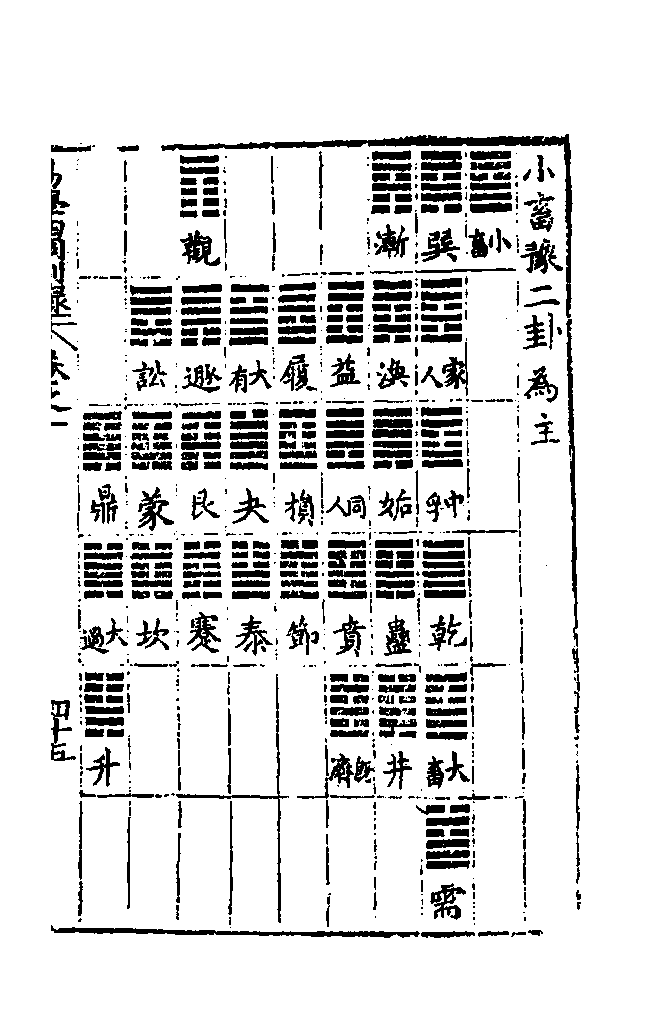 小畜豫二卦為主
小畜 巽 漸 觀
家人 渙 益 履 大有 遯 訟
中孚 姤 同人 損 夬 艮 蒙 鼎
乾 蠱 賁 節 泰 蹇 坎 大過
大畜 井 既濟 升
需
四十五